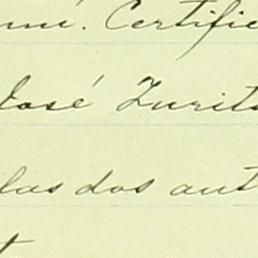 mi. Certifie
José Zurita
las dos ant